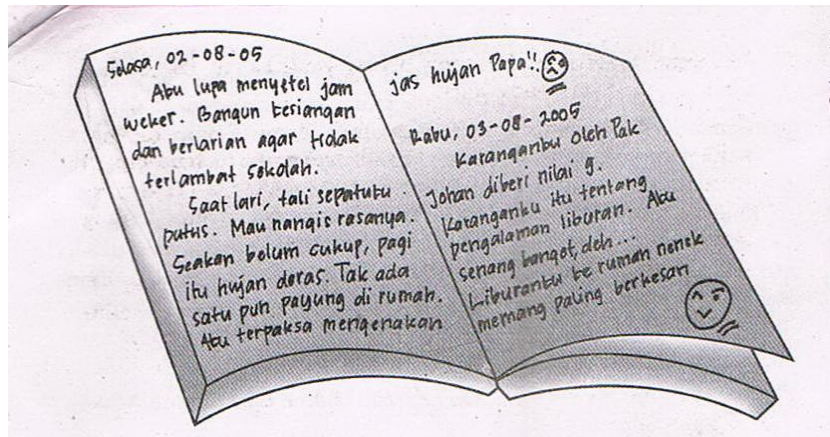 Selasa, 02-08-05
Aku lupa menyetel jam
weker. Bangun kesiangan
dan berlarian agar tidak
terlambat sekolah.
Saat lari, tali sepatuku
putus. Mau nangis rasanya.
Seakan belum cukup, pagi
itu hujan deras. Tak ada
satu pun payung di rumah.
Aku terpaksa mengenakan
jas hujan Papa!!
Rabu, 03-08-2005
Karanganku oleh Pak
Johan diberi nilai 9.
Karanganku itu tentang
pengalaman liburan. Aku
senang banget, deh...
Liburanku ke rumah nenek
memang paling berkesan